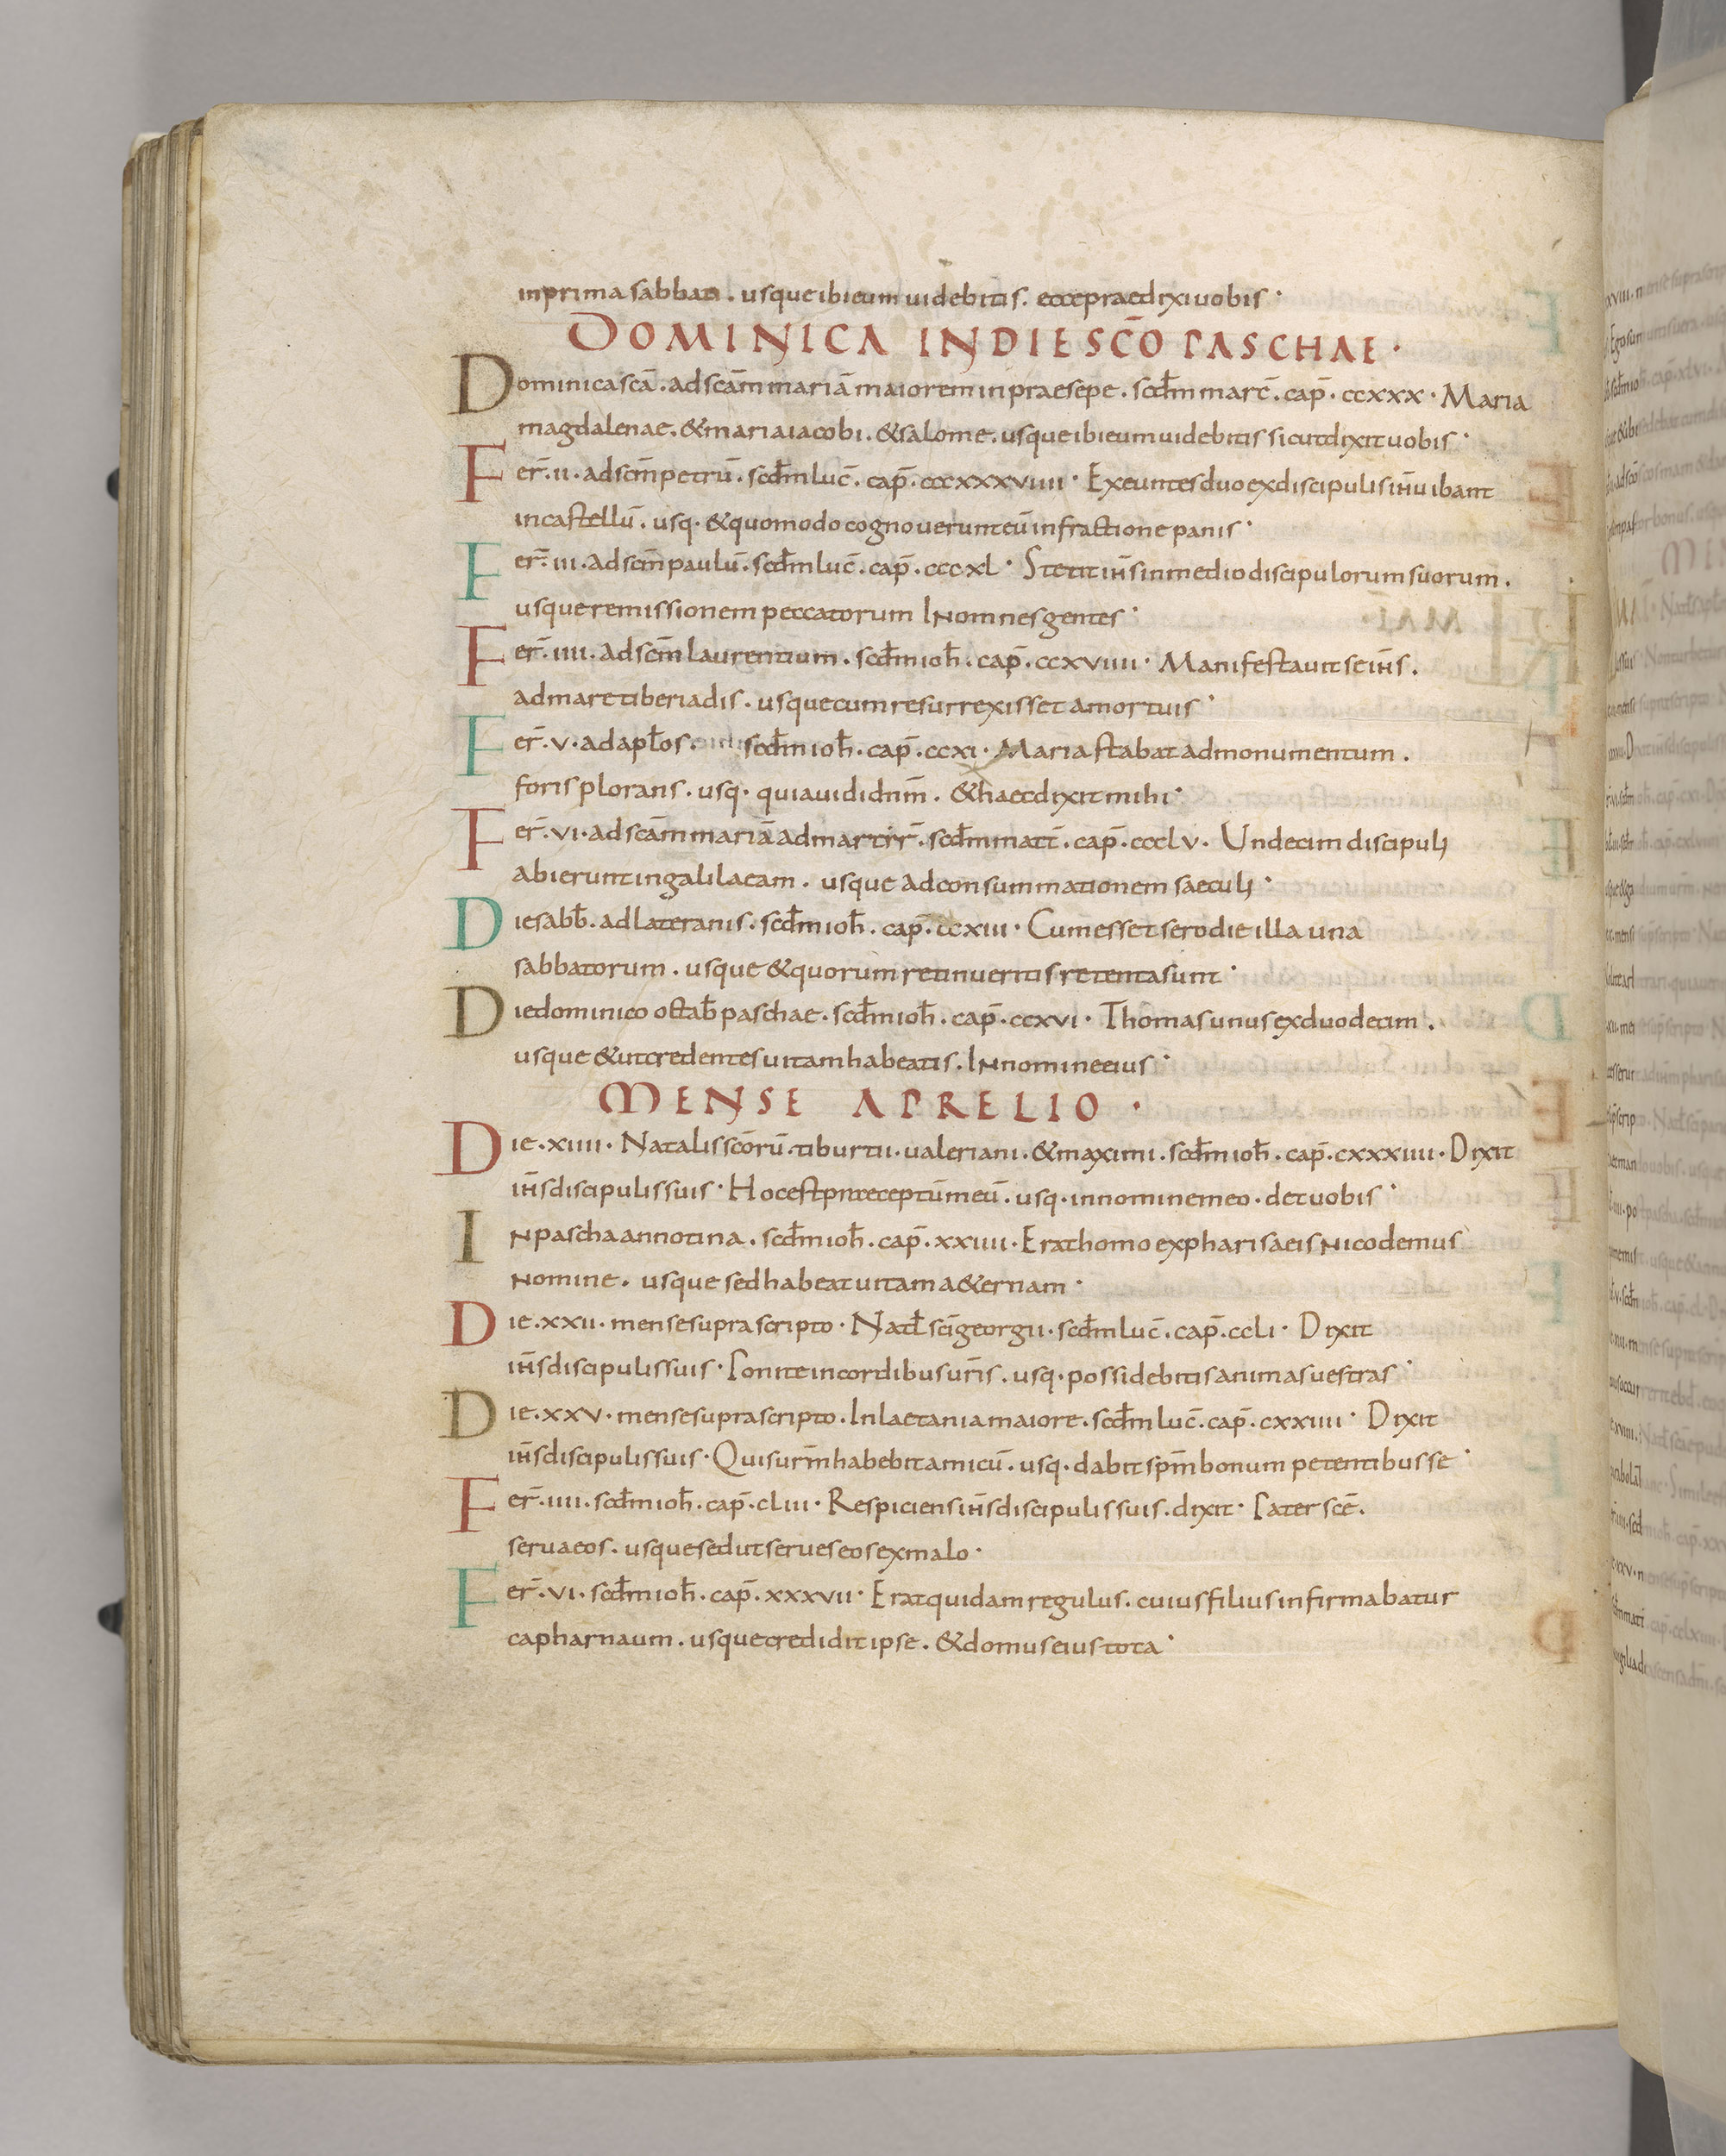 inprima sabbati . usque ibi eum uidebitis . ecce praedixi uobis ·
DOMINICA IN DIE SCŌ PASCHAE ·
Dominica scā . ad scām mariā maiorem in praesepe . scđm marc̄ . cap̄ . ccxxx · Maria
magdalenae . & maria iacobi . & salome . usque ibi eum uidebitis sicut dixit uobis ·
Fer̄ . ii . ad scm̄ petrū . scđm luc̄ . cap̄ . cccxxxviiii · Exeuntes duo ex discipulis ih̄u ibant
in castellū . usq · & quomodo cognouerunt eū in fractione panis ·
Fer̄ . iii . ad scm̄ paulū . scđm luc̄ . cap̄ . cccxl · Stetit ih̄s in medio discipulorum suorum .
usque remissionem peccatorum IN omnes gentes ·
Fer̄ . iiii . ad scm̄ laurentium . scđm ioh̄ . cap̄ . ccxviiii · Manifestauit se ih̄s .
ad mare tiberiadis . usque cum resurrexisset a mortuis ·
Fer̄ . v . ad apłos . scđm ioh̄ . cap̄ . ccxi · Maria stabat ad monumentum .
foris plorans . usq · quia uidi dn̄m . & haec dixit mihi ·
Fer̄ . vi . ad scām mariā ad martyr̄ . scđm matt̄ . cap̄ . ccclv . Undecim discipuli
abierunt in galilaeam . usque ad consummationem saeculi ·
Die sabb̄ . ad lateranis . scđm ioh̄ . cap̄ . ccxiii · Cum esset sero die illa una
sabbatorum . usque & quorum retinueritis retenta sunt ·
Die dominico octab̄ paschae . scđm ioh̄ . cap̄ . ccxvi · Thomas unus ex duodecim .
usque & ut credentes uitam habeatis . IN nomine eius ·
MENSE APRELIO ·
Die . xiiii · Natalis scōrū . tiburtii . ualeriani . & maximi . scđm ioh̄ . cap̄ . cxxxiiii · Dixit
ih̄s discipulis suis · Hoc est praeceptū meū . usq · in nomine meo . det uobis ·
IN pascha annotina . scđm ioh̄ . cap̄ . xxiiii · Erat homo ex pharisaeis Nicodemus
Nomine . usque sed habeat uitam a&ernam ·
Die . xxii · mense suprascripto · Natł scī georgii . scđm luc̄ . cap̄ . ccli · Dixit
ih̄s discipulis suis · Ponite in cordibus ur̄is . usq · possidebitis animas uestras ·
Die . xxv · mense suprascripto . In laetania maiore . scđm luc̄ . cap̄ . cxxiiii · Dixit
ih̄s discipulis suis · Quis ur̄m habebit amicū . usq · dabit spm̄ bonum petentibus se ·
Fer̄ . iiii . scđm ioh̄ . cap̄ . cliii · Respiciens ih̄s discipulis suis . dixit · Pater scē .
serua eos . usque sed ut serues eos ex malo ·
Fer̄ . vi . scđm ioh̄ . cap̄ . xxxvii · Erat quidam regulus . cuius filius infirmabatur
capharnaum . usque credidit ipse . & domus eius tota ·